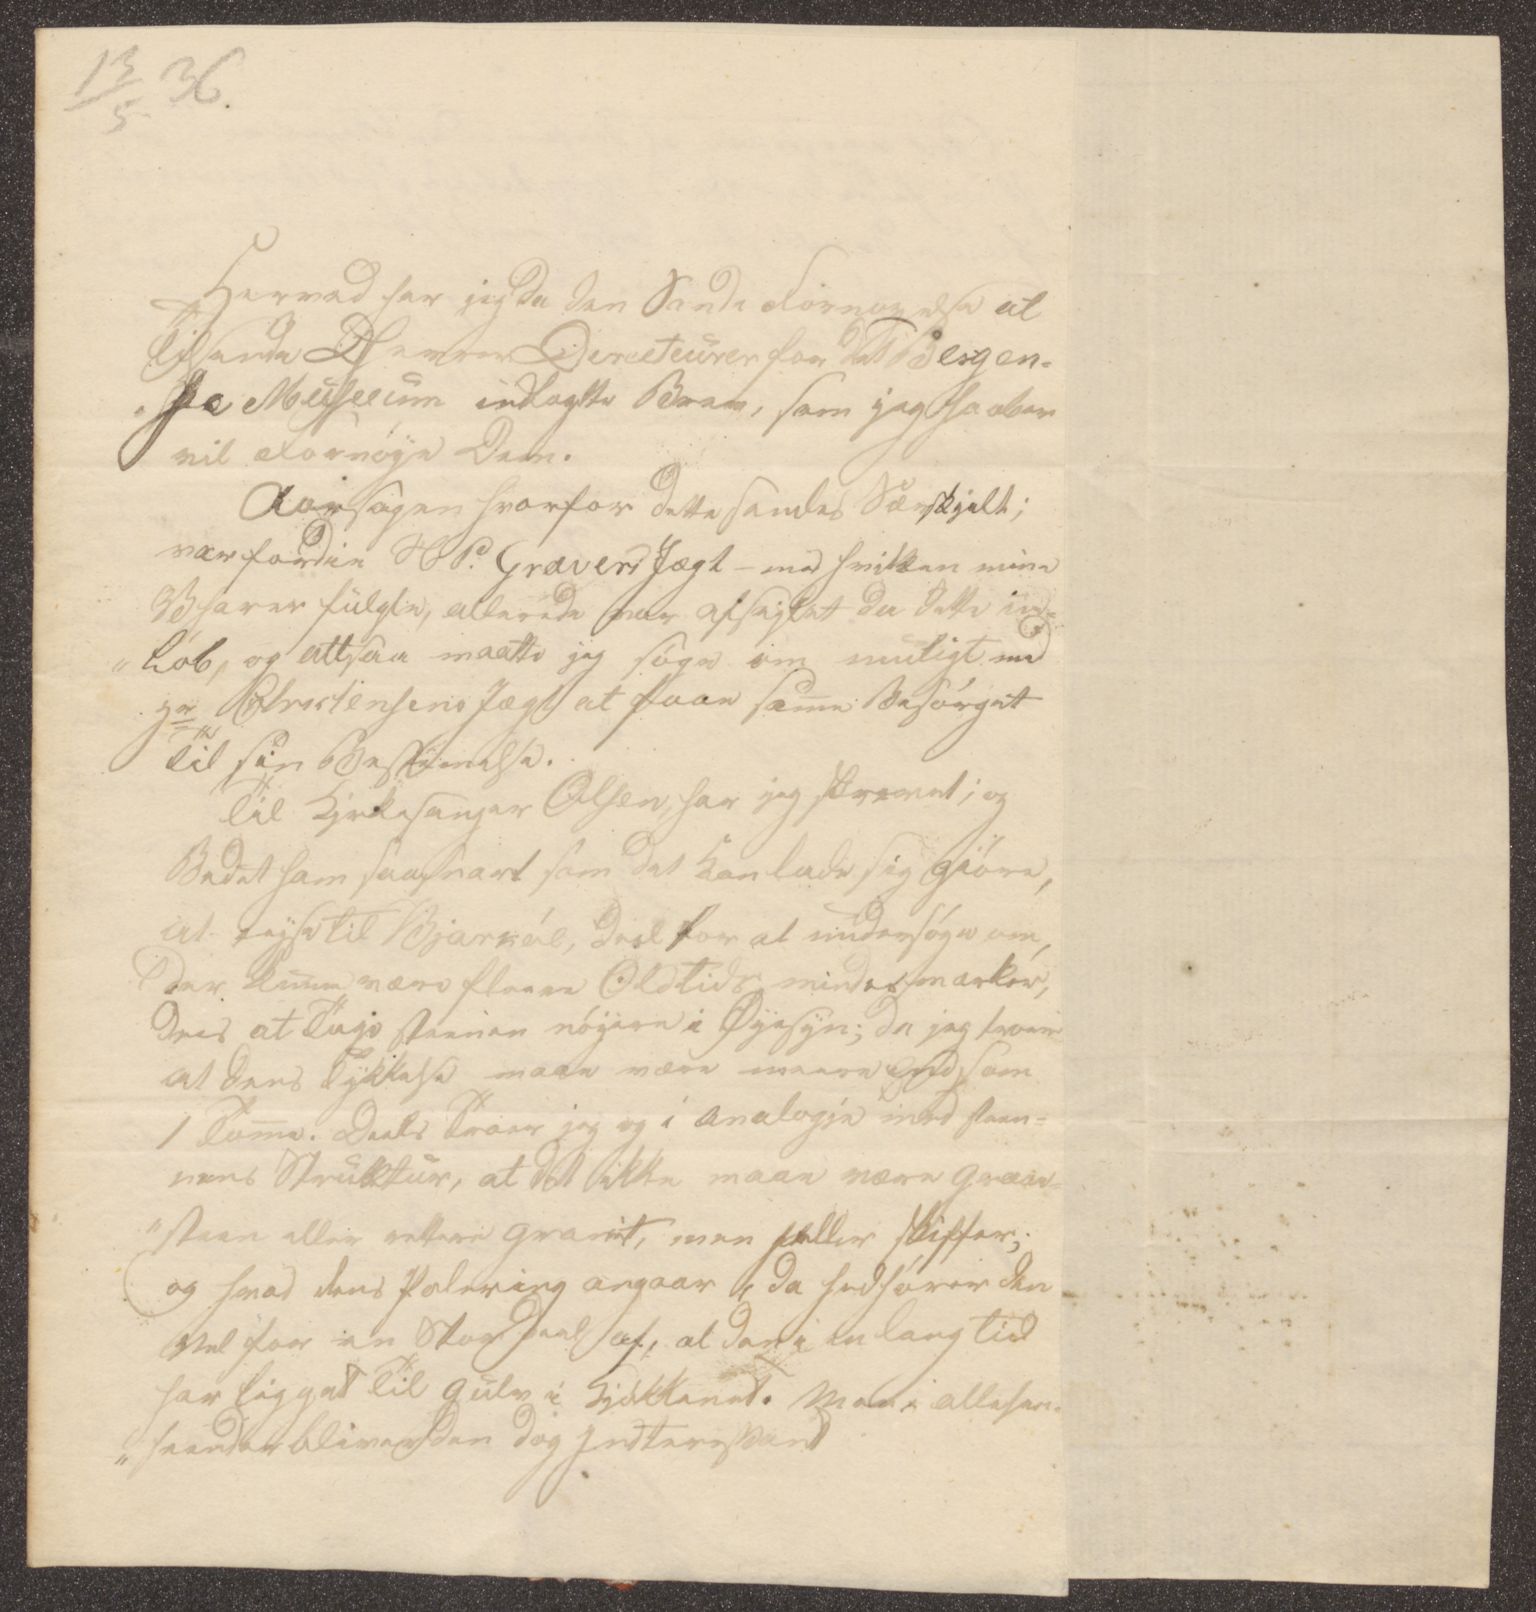 13/5 36.
Hermed har jeg da den Sande Fornøyelse at
Tilsende DHerrer Directeurer for det Bergen-
"ske Musseum indlagte Brev, som jeg haaber
vil Fornöye Dem.
Aarsagen hvorfor dette sendes Særskjelt;
var fordie Græverd Jægt – med hvilken mine
Bharer fulgte, allerede var afseylet da dette ind-
"löb, og alttsaa maatte jeg söge om muligt med
Christensens Jægt at faae samme Besörget
Til sin Bestemelse.
Til Kjrkesanger Olsen, har jeg skrevet; og
Bedet ham saasnart som det kan lade sig giöre,
at reyse til Bjarköe, deel for at undersöge om,
der kunne være fleere Oldtids mindesmærker,
dees at Tage steenen nöyere i Øyesyn; da jeg troer
at dens Tykkelse maae være meere End som
1 Tomme. Deels Troer jeg og i Analogie med steen-
nens Struktur, at det ikke maae være Graae-
"steen eller rettere granit, men heller skiffer;
og hvad dens Polering angaar, da hedhörer den
vel for en Stor Deel af, at den i en lang tid
har ligget Til gulv i Kjökkenet. Men i allehen-
"seender bliver den dog Indteressant